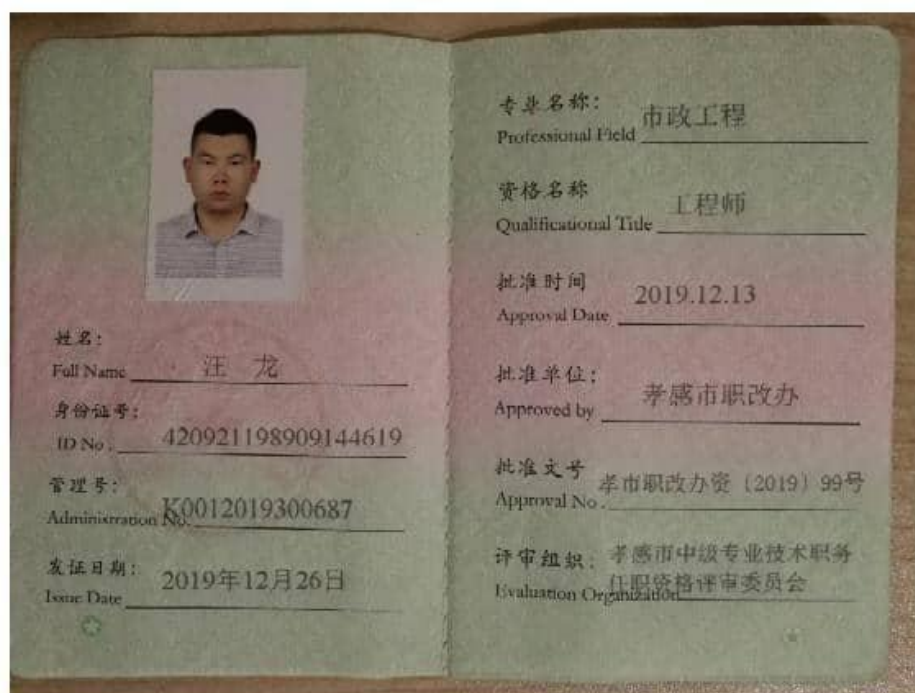 姓名:
Full Name 汪 龙
身份证号:
ID No. 420921198909144619
管理号:
Administration No. K0012019300687
发证日期:
Issue Date 2019年12月26日
专业名称:
Professional Field 市政工程
资格名称
Qualificational Title 工程师
批准时间
Approval Date 2019.12.13
批准单位:
Approved by 孝感市职改办
批准文号
Approval No. 孝市职改办资〔2019〕99号
评审组织: 孝感市中级专业技术职务
Evaluation Organization 任职资格评审委员会